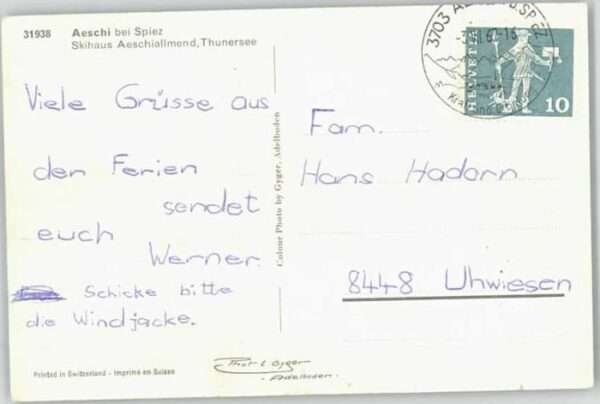 31938 Aeschi bei Spiez
Skihaus Aeschiallmend, Thunersee
Viele Grüsse aus
den Ferien
sendet
euch
Werner.
Schicke bitte
die Windjacke.
Printed in Switzerland - Imprimé en Suisse
Colour Photo by Gyger, Adelboden
Phot E. Gyger
Adelboden
3703
HELVETIA
10
Fam.
Hans Hadorn
8448 Uhwiesen